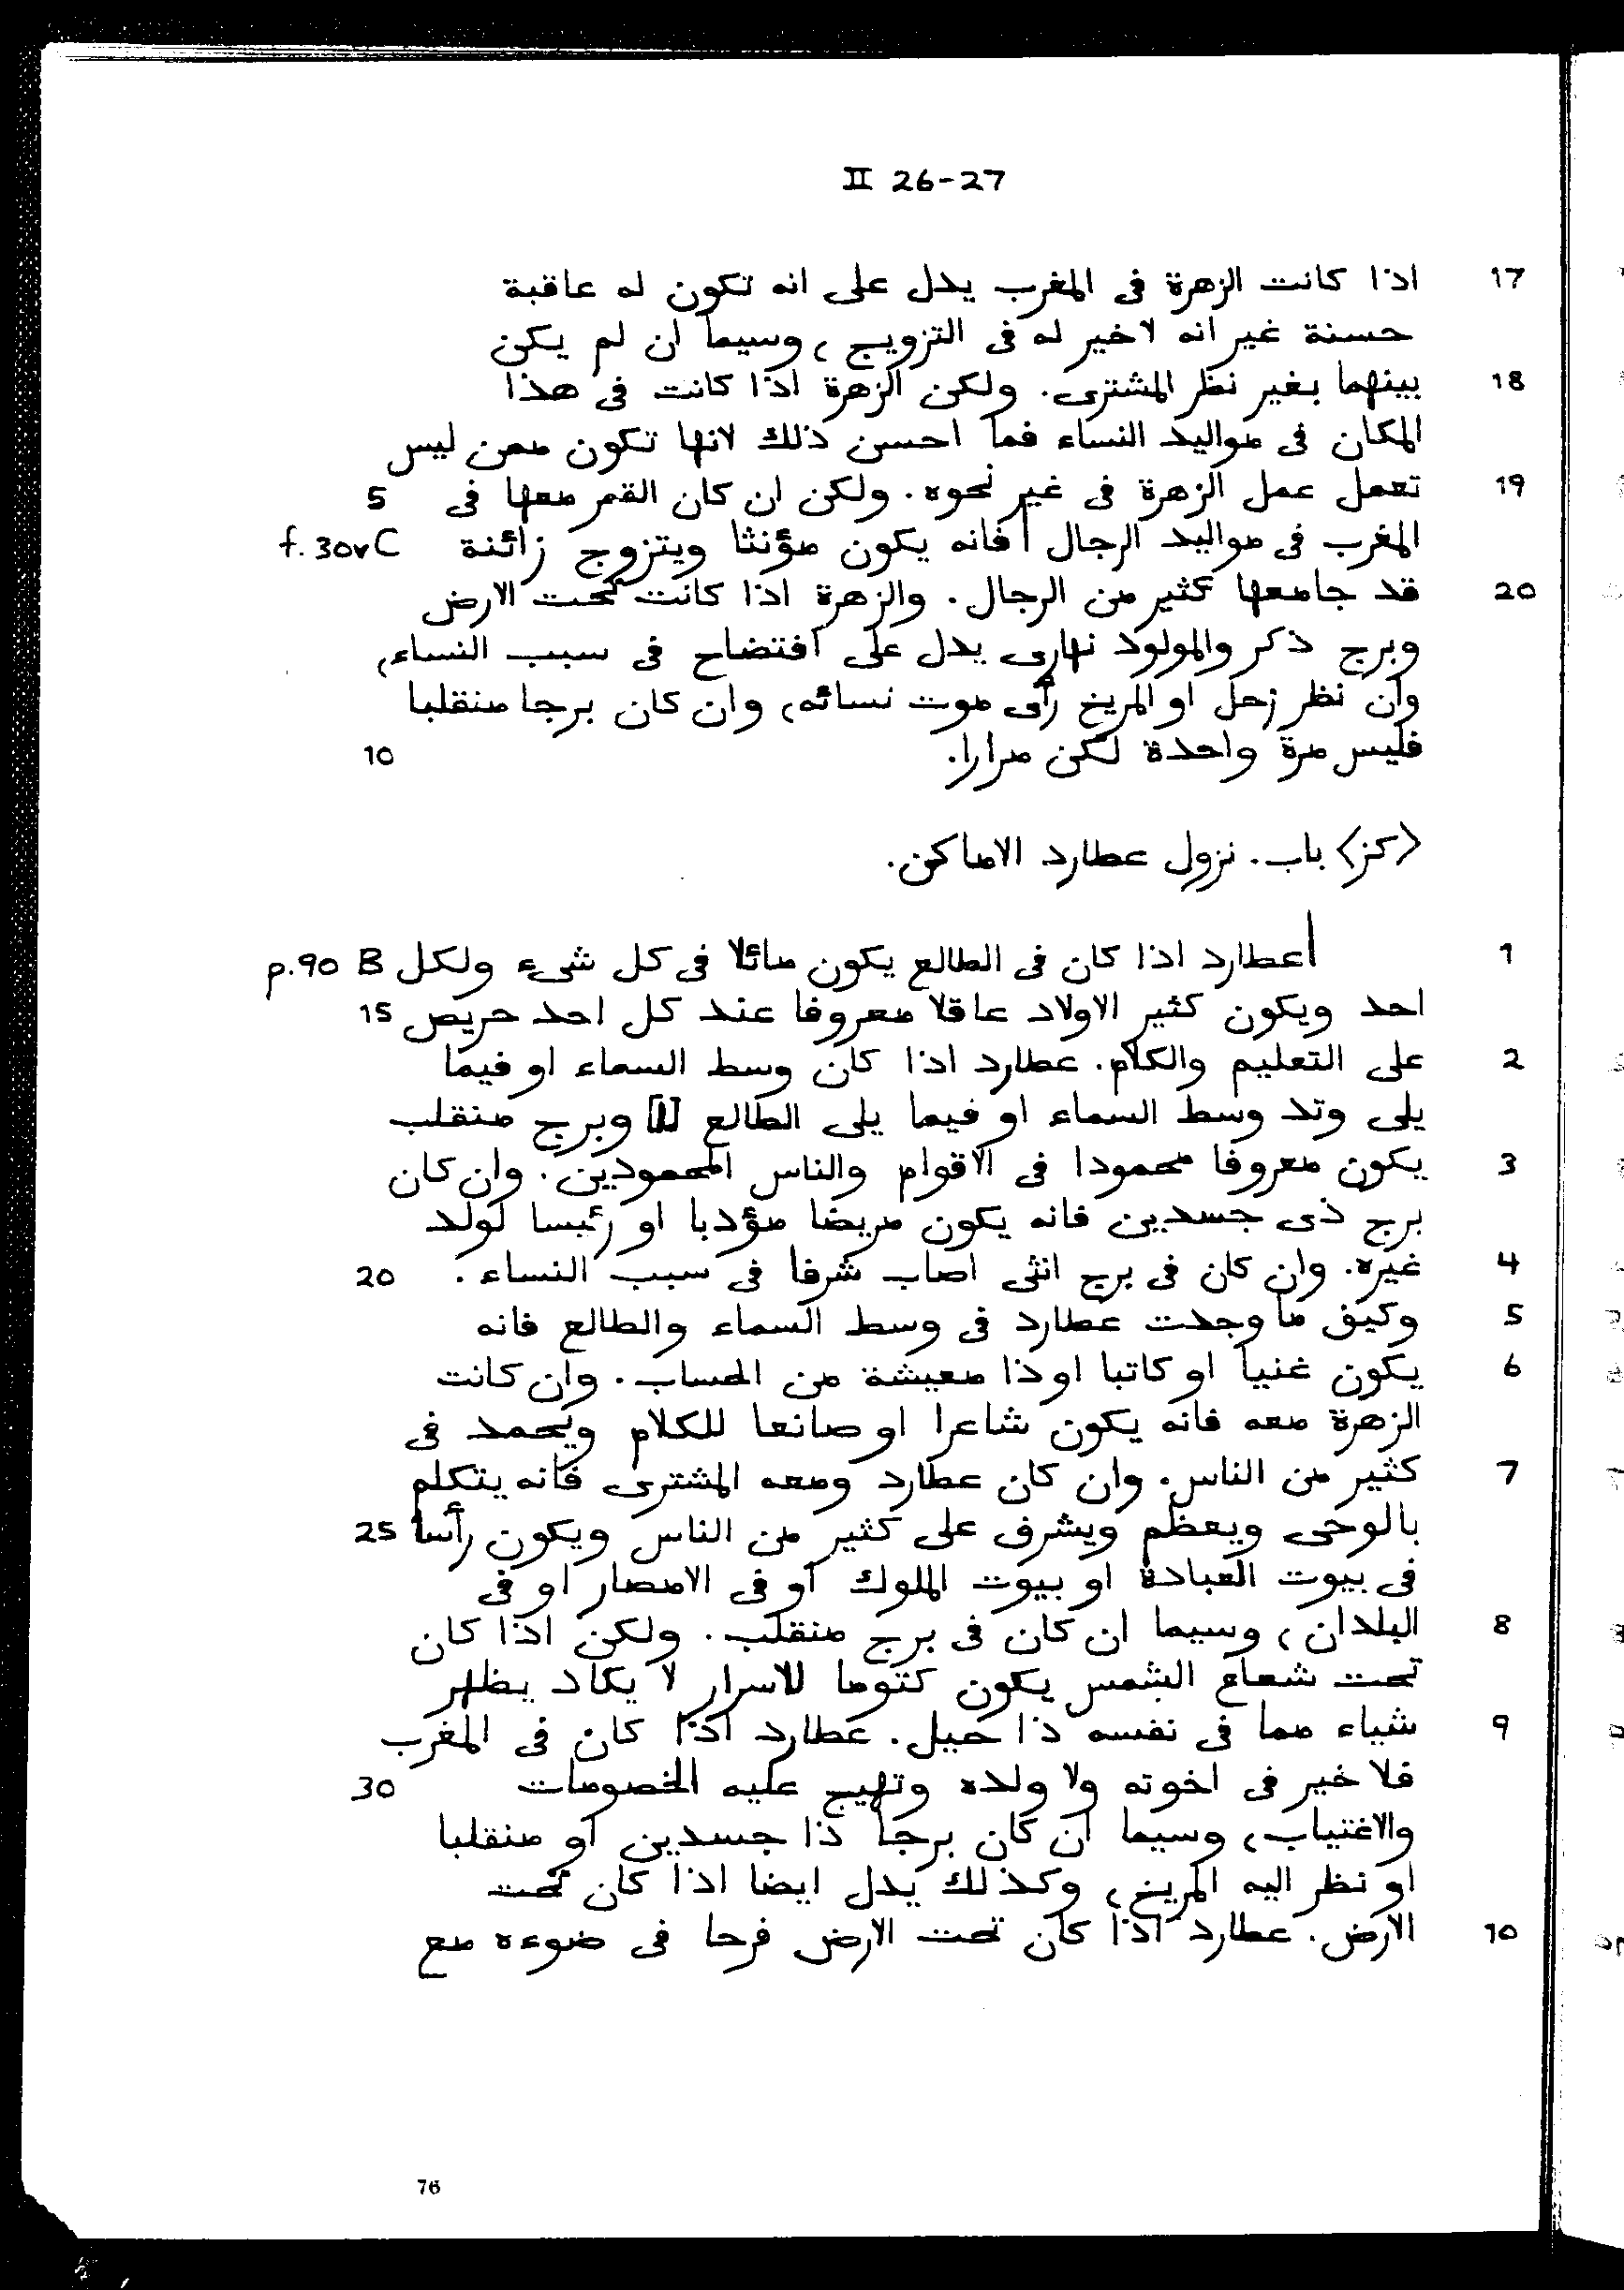 II 26-27
17 اذا كانت الزهرة فى المغرب يدل على انه تكون له عاقبة
حسنة غير انه لاخير له فى التزويج، وسيما ان لم يكن
18 بينهما بغير نظر المشترى. ولكن الزهرة اذا كانت فى هذا
المكان فى مواليد النساء فما احسن ذلك لانها تكون ممن ليس
19 تعمل عمل الزهرة فى غير نحوه. ولكن ان كان القمر معها فى 5
المغرب فى مواليد الرجال | فانه يكون مؤنثا ويتزوج زائنة f. 30v C
20 قد جامعها كثير من الرجال. والزهرة اذا كانت تحت الارض
وبرج ذكر والمولود نهارى يدل على افتضاح فى سبب النساء،
وان نظر زحل او المريخ رأى موت نسائه، وان كان برجا منقلبا
فليس مرة واحدة لكن مرارا. 10
〈كز〉 باب. نزول عطارد الاماكن.
1 | عطارد اذا كان فى الطالع يكون مائلا فى كل شىء ولكل p.90 B
احد ويكون كثير الاولاد عاقلا معروفا عند كل احد حريص 15
2 على التعليم والكلام. عطارد اذا كان وسط السماء او فيما
يلى وتد وسط السماء او فيما يلى الطالع [ا] وبرج منقلب
3 يكون معروفا محمودا فى الاقوام والناس المحمودين. وان كان
برج ذى جسدين فانه يكون مريضا مؤدبا او رئيسا لولد
4 غيره. وان كان فى برج انثى اصاب شرفا فى سبب النساء. 20
5 وكيف ما وجدت عطارد فى وسط السماء والطالع فانه
6 يكون غنيا او كاتبا اوذا معيشة من الحساب. وان كانت
الزهرة معه فانه يكون شاعرا او صانعا للكلام ويحمد فى
7 كثير من الناس. وان كان عطارد ومعه المشترى فانه يتكلم
بالوحى ويعظم ويشرف على كثير من الناس ويكون رأسا 25
فى بيوت العبادة او بيوت الملوك او فى الامصار او فى
8 البلدان، وسيما ان كان فى برج منقلب. ولكن اذا كان
تحت شعاع الشمس يكون كتوما للاسرار لا يكاد يظهر
9 شياء مما فى نفسه ذا حيل. عطارد اذا كان فى المغرب
فلا خير فى اخوته ولا ولده وتهيج عليه الخصومات 30
والاغتياب، وسيما ان كان برجا ذا جسدين او منقلبا
او نظر اليه المريخ، وكذلك يدل ايضا اذا كان تحت
10 الارض. عطارد اذا كان تحت الارض فرحا فى ضوءه مع
76